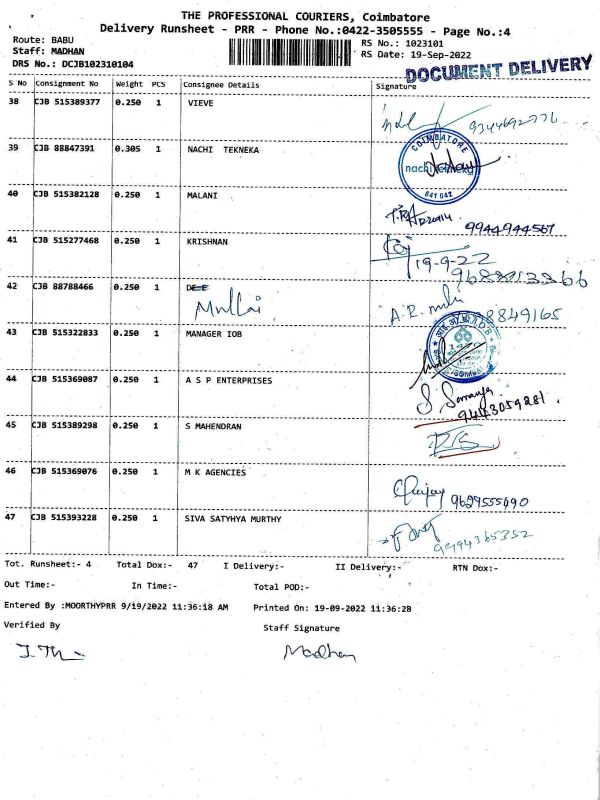 THE PROFESSIONAL COURIERS, Coimbatore
Delivery Runsheet - PRR - Phone No.:0422-3505555 - Page No.:4
Route: BABU
Staff: MADHAN
DRS No.: DCJB102310104
RS No.: 1023101
RS Date: 19-Sep-2022
DOCUMENT DELIVERY
S No Consignment No Weight PCS Consignee Details Signature
38 CJB 515389377 0.250 1 VIEVE
39 CJB 88847391 0.305 1 NACHI TEKNEKA
COIMBATORE
641 042
40 CJB 515382128 0.250 1 MALANI
9944944567
41 CJB 515277468 0.250 1 KRISHNAN
19-9-22
42 CJB 88788466 0.250 1 DEE
Mullai
8849165
43 CJB 515322833 0.250 1 MANAGER IOB
44 CJB 515369087 0.250 1 A S P ENTERPRISES
S. Soranya
9443059281
45 CJB 515389298 0.250 1 S MAHENDRAN
46 CJB 515369076 0.250 1 M K AGENCIES
9629555490
47 CJB 515393228 0.250 1 SIVA SATYHYA MURTHY
9994365352
Tot. Runsheet:- 4 Total Dox:- 47 I Delivery:- II Delivery:- RTN Dox:-
Out Time:- In Time:- Total POD:-
Entered By :MOORTHYPRR 9/19/2022 11:36:18 AM Printed On: 19-09-2022 11:36:28
Verified By Staff Signature
Madhan